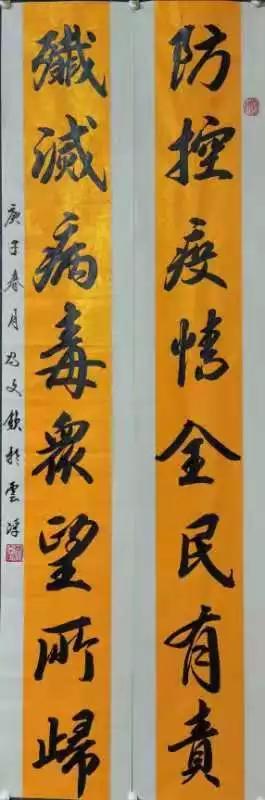 防控疫情全民有責
殲滅病毒衆望所歸
庚子春月文錦於雲浮